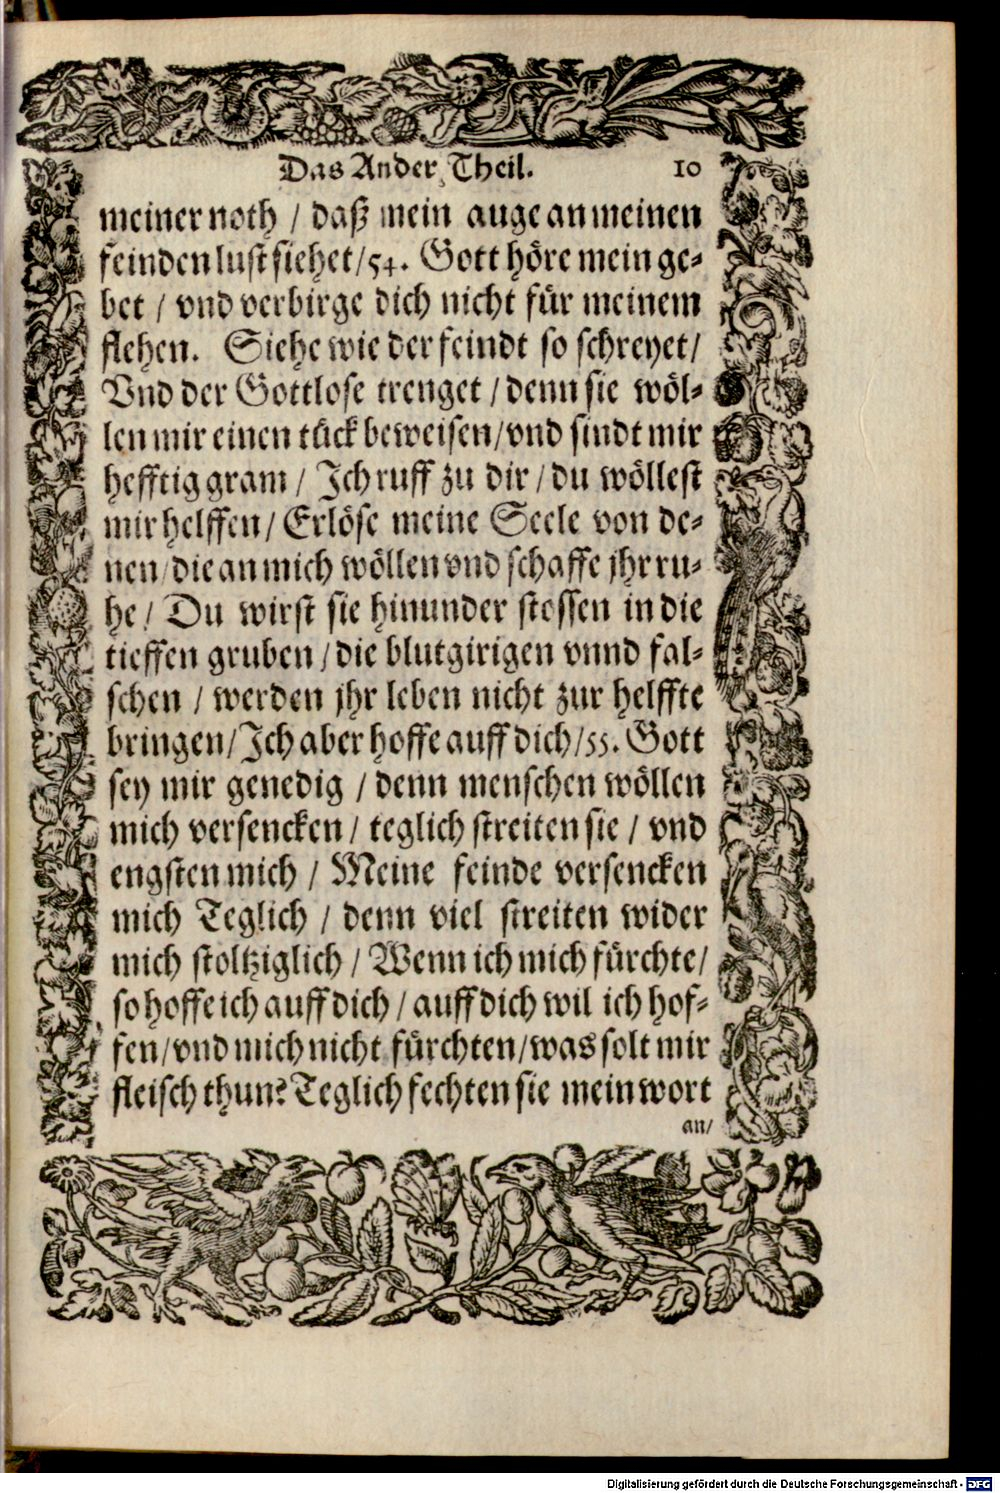 Das Ander Theil. 10
meiner noth / daß mein auge an meinen
feinden lust siehet / 54. Gott höre mein ge-
bet / vnd verbirge dich nicht für meinem
flehen. Siehe wie der feindt so schreyet /
Vnd der Gottlose trenget / denn sie wöl-
len mir einen tück beweisen / vnd sindt mir
hefftig gram / Ich ruff zu dir / du wöllest
mir helffen / Erlöse meine Seele von de-
nen / die an mich wöllen vnd schaffe jhr ru-
he / Du wirst sie hinunder stossen in die
tieffen gruben / die blutgirigen vnnd fal-
schen / werden jhr leben nicht zur helffte
bringen / Ich aber hoffe auff dich / 55. Gott
sey mir genedig / denn menschen wöllen
mich versencken / teglich streiten sie / vnd
engsten mich / Meine feinde versencken
mich Teglich / denn viel streiten wider
mich stoltziglich / Wenn ich mich fürchte /
so hoffe ich auff dich / auff dich wil ich hof-
fen / vnd mich nicht fürchten / was solt mir
fleisch thun? Teglich fechten sie mein wort
an /
Digitalisierung gefördert durch die Deutsche Forschungsgemeinschaft - DFG